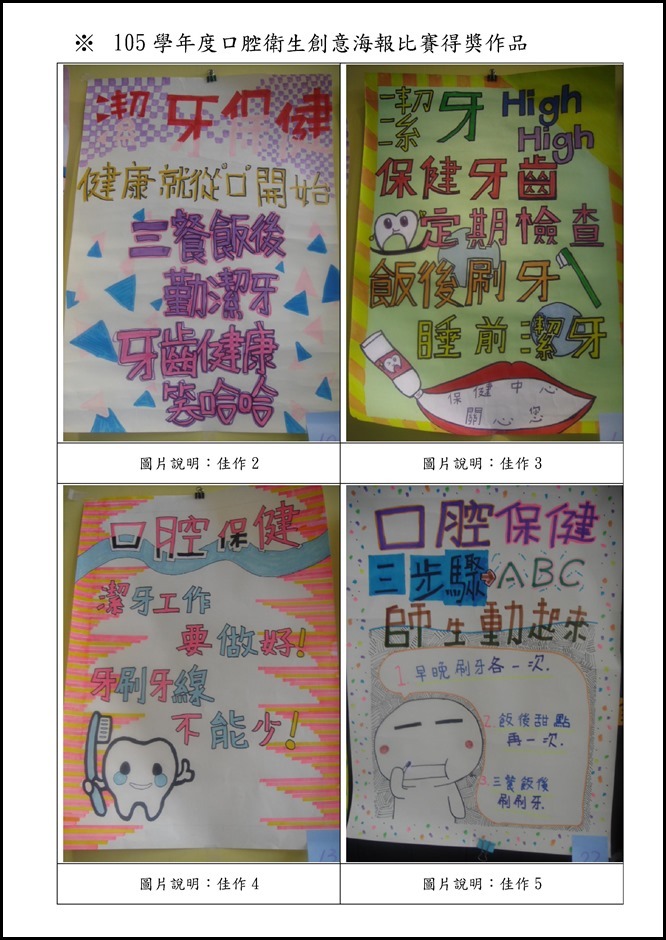 ※ 105學年度口腔衛生創意海報比賽得獎作品
潔牙保健
健康就從"口"開始
三餐飯後
勤潔牙
牙齒健康
笑哈哈
圖片說明：佳作2
潔牙 High
High
保健牙齒
定期檢查
飯後刷牙
睡前潔牙
保健中心
關心您
圖片說明：佳作3
口腔保健
潔牙工作
要做好!
牙刷牙線
不能少!
13
圖片說明：佳作4
口腔保健
三步驟→ABC
師生動起來
1.早晚刷牙各一次.
2.飯後甜點
再一次.
3.三餐飯後
刷刷牙.
22
圖片說明：佳作5